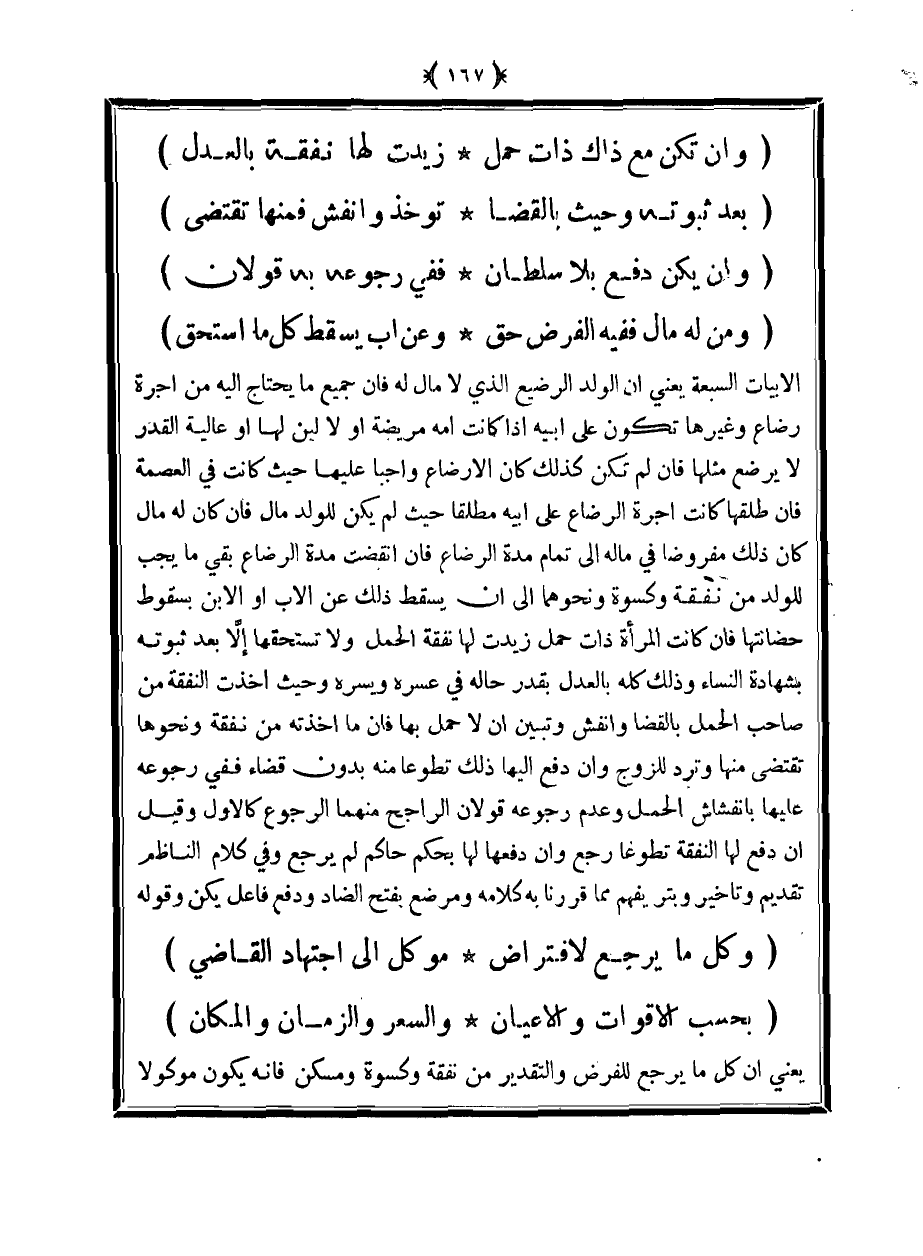 ﴿ ١٦٧ ﴾
( وان تكن مع ذاك ذات حمل * زيدت لها نفقة بالعدل )
( بعد ثبوته وحيث بالقضا * توخذ وانفش فمنها تقتضى )
( وان يكن دفع بلا سلطان * ففي رجوعه به قولان )
( ومن له مال ففيه الفرض حق * وعن اب يسقط كل ما استحق )
الابيات السبعة يعني ان الولد الرضيع الذي لا مال له فان جميع ما يحتاج اليه من اجرة
رضاع وغيرها تكون على ابيه اذا كانت امه مريضة او لا لبن لها او عالية القدر
لا يرضع مثلها فان لم تكن كذلك كان الارضاع واجبا عليها حيث كانت في العصمة
فان طلقها كانت اجرة الرضاع على ابيه مطلقا حيث لم يكن للولد مال فان كان له مال
كان ذلك مفروضا في ماله الى تمام مدة الرضاع فان انقضت مدة الرضاع بقي ما يجب
للولد من نفقة وكسوة ونحوهما الى ان يسقط ذلك عن الاب او الابن بسقوط
حضانتها فان كانت المرأة ذات حمل زيدت لها نفقة الحمل ولا تستحقها إلّا بعد ثبوته
بشهادة النساء وذلك كله بالعدل بقدر حاله في عسره ويسره وحيث اخذت النفقة من
صاحب الحمل بالقضا وانفش وتبين ان لا حمل بها فان ما اخذته من نفقة ونحوها
تقتضى منها وترد للزوج وان دفع اليها ذلك تطوعا منه بدون قضاء ففي رجوعه
عليها بانفشاش الحمل وعدم رجوعه قولان الراجح منهما الرجوع كالاول وقيل
ان دفع لها النفقة تطوعا رجع وان دفعها لها بحكم حاكم لم يرجع وفي كلام الناظم
تقديم وتاخير وبتر يفهم مما قررنا به كلامه ومرضع بفتح الضاد ودفع فاعل يكن وقوله
( وكل ما يرجع لافتراض * موكل الى اجتهاد القاضي )
( بحسب الاقوات والاعيان * والسعر والزمان والمكان )
يعني ان كل ما يرجع للفرض والتقدير من نفقة وكسوة ومسكن فانه يكون موكولا